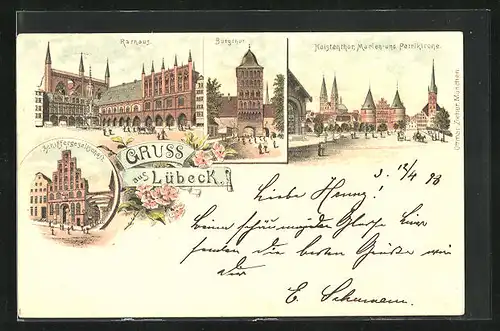 Rathaus.
Burgthor
Holstenthor, Marien- und Petrikirche.
Schiffergesellschaft
GRUSS
aus Lübeck.
Ottmar Zieher, München
d. 12/4 98
Liebe Henny!
Deine
senden die besten Grüße von
E.